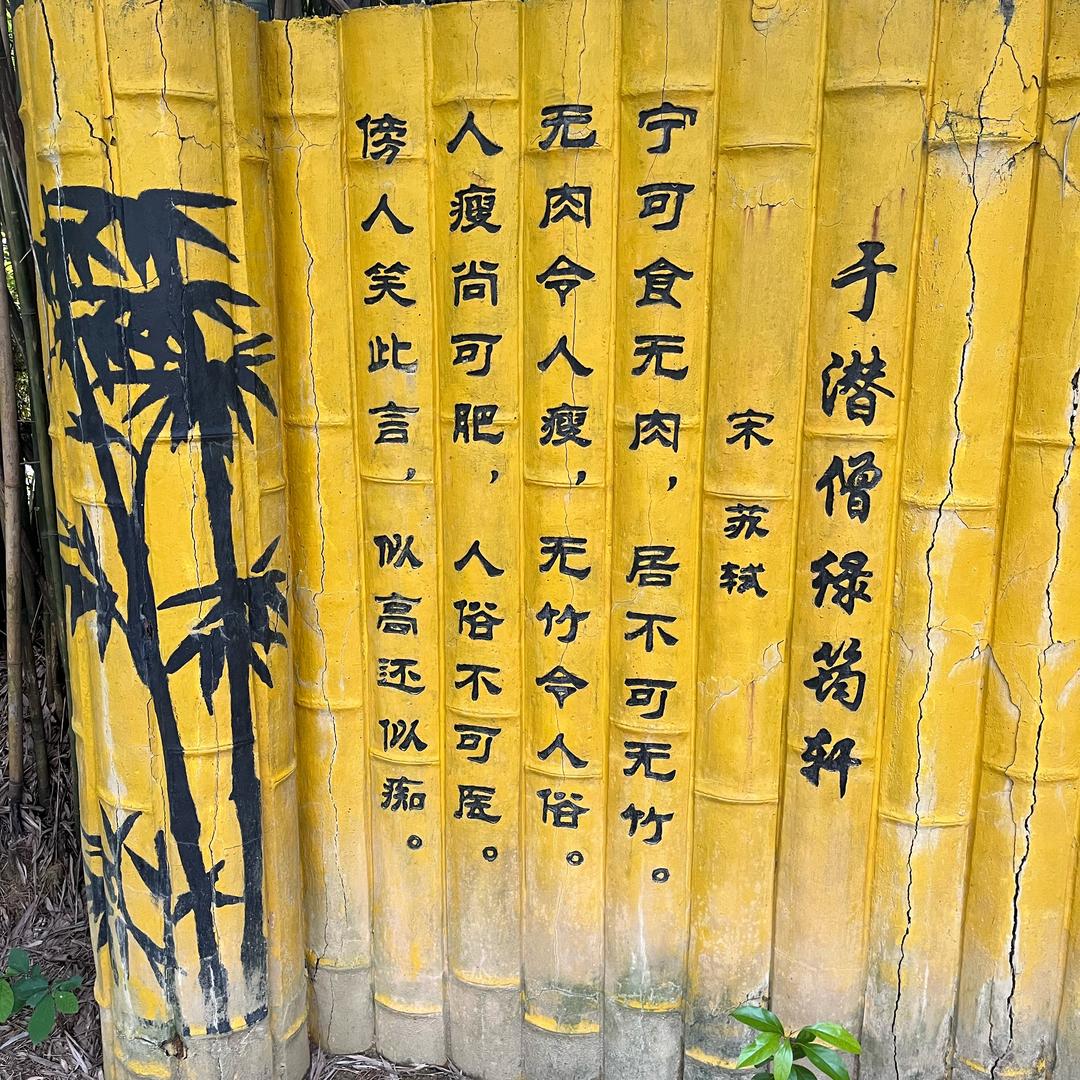 于潜僧绿筠轩
宋 苏轼
宁可食无肉，居不可无竹。
无肉令人瘦，无竹令人俗。
人瘦尚可肥，人俗不可医。
傍人笑此言，似高还似痴。